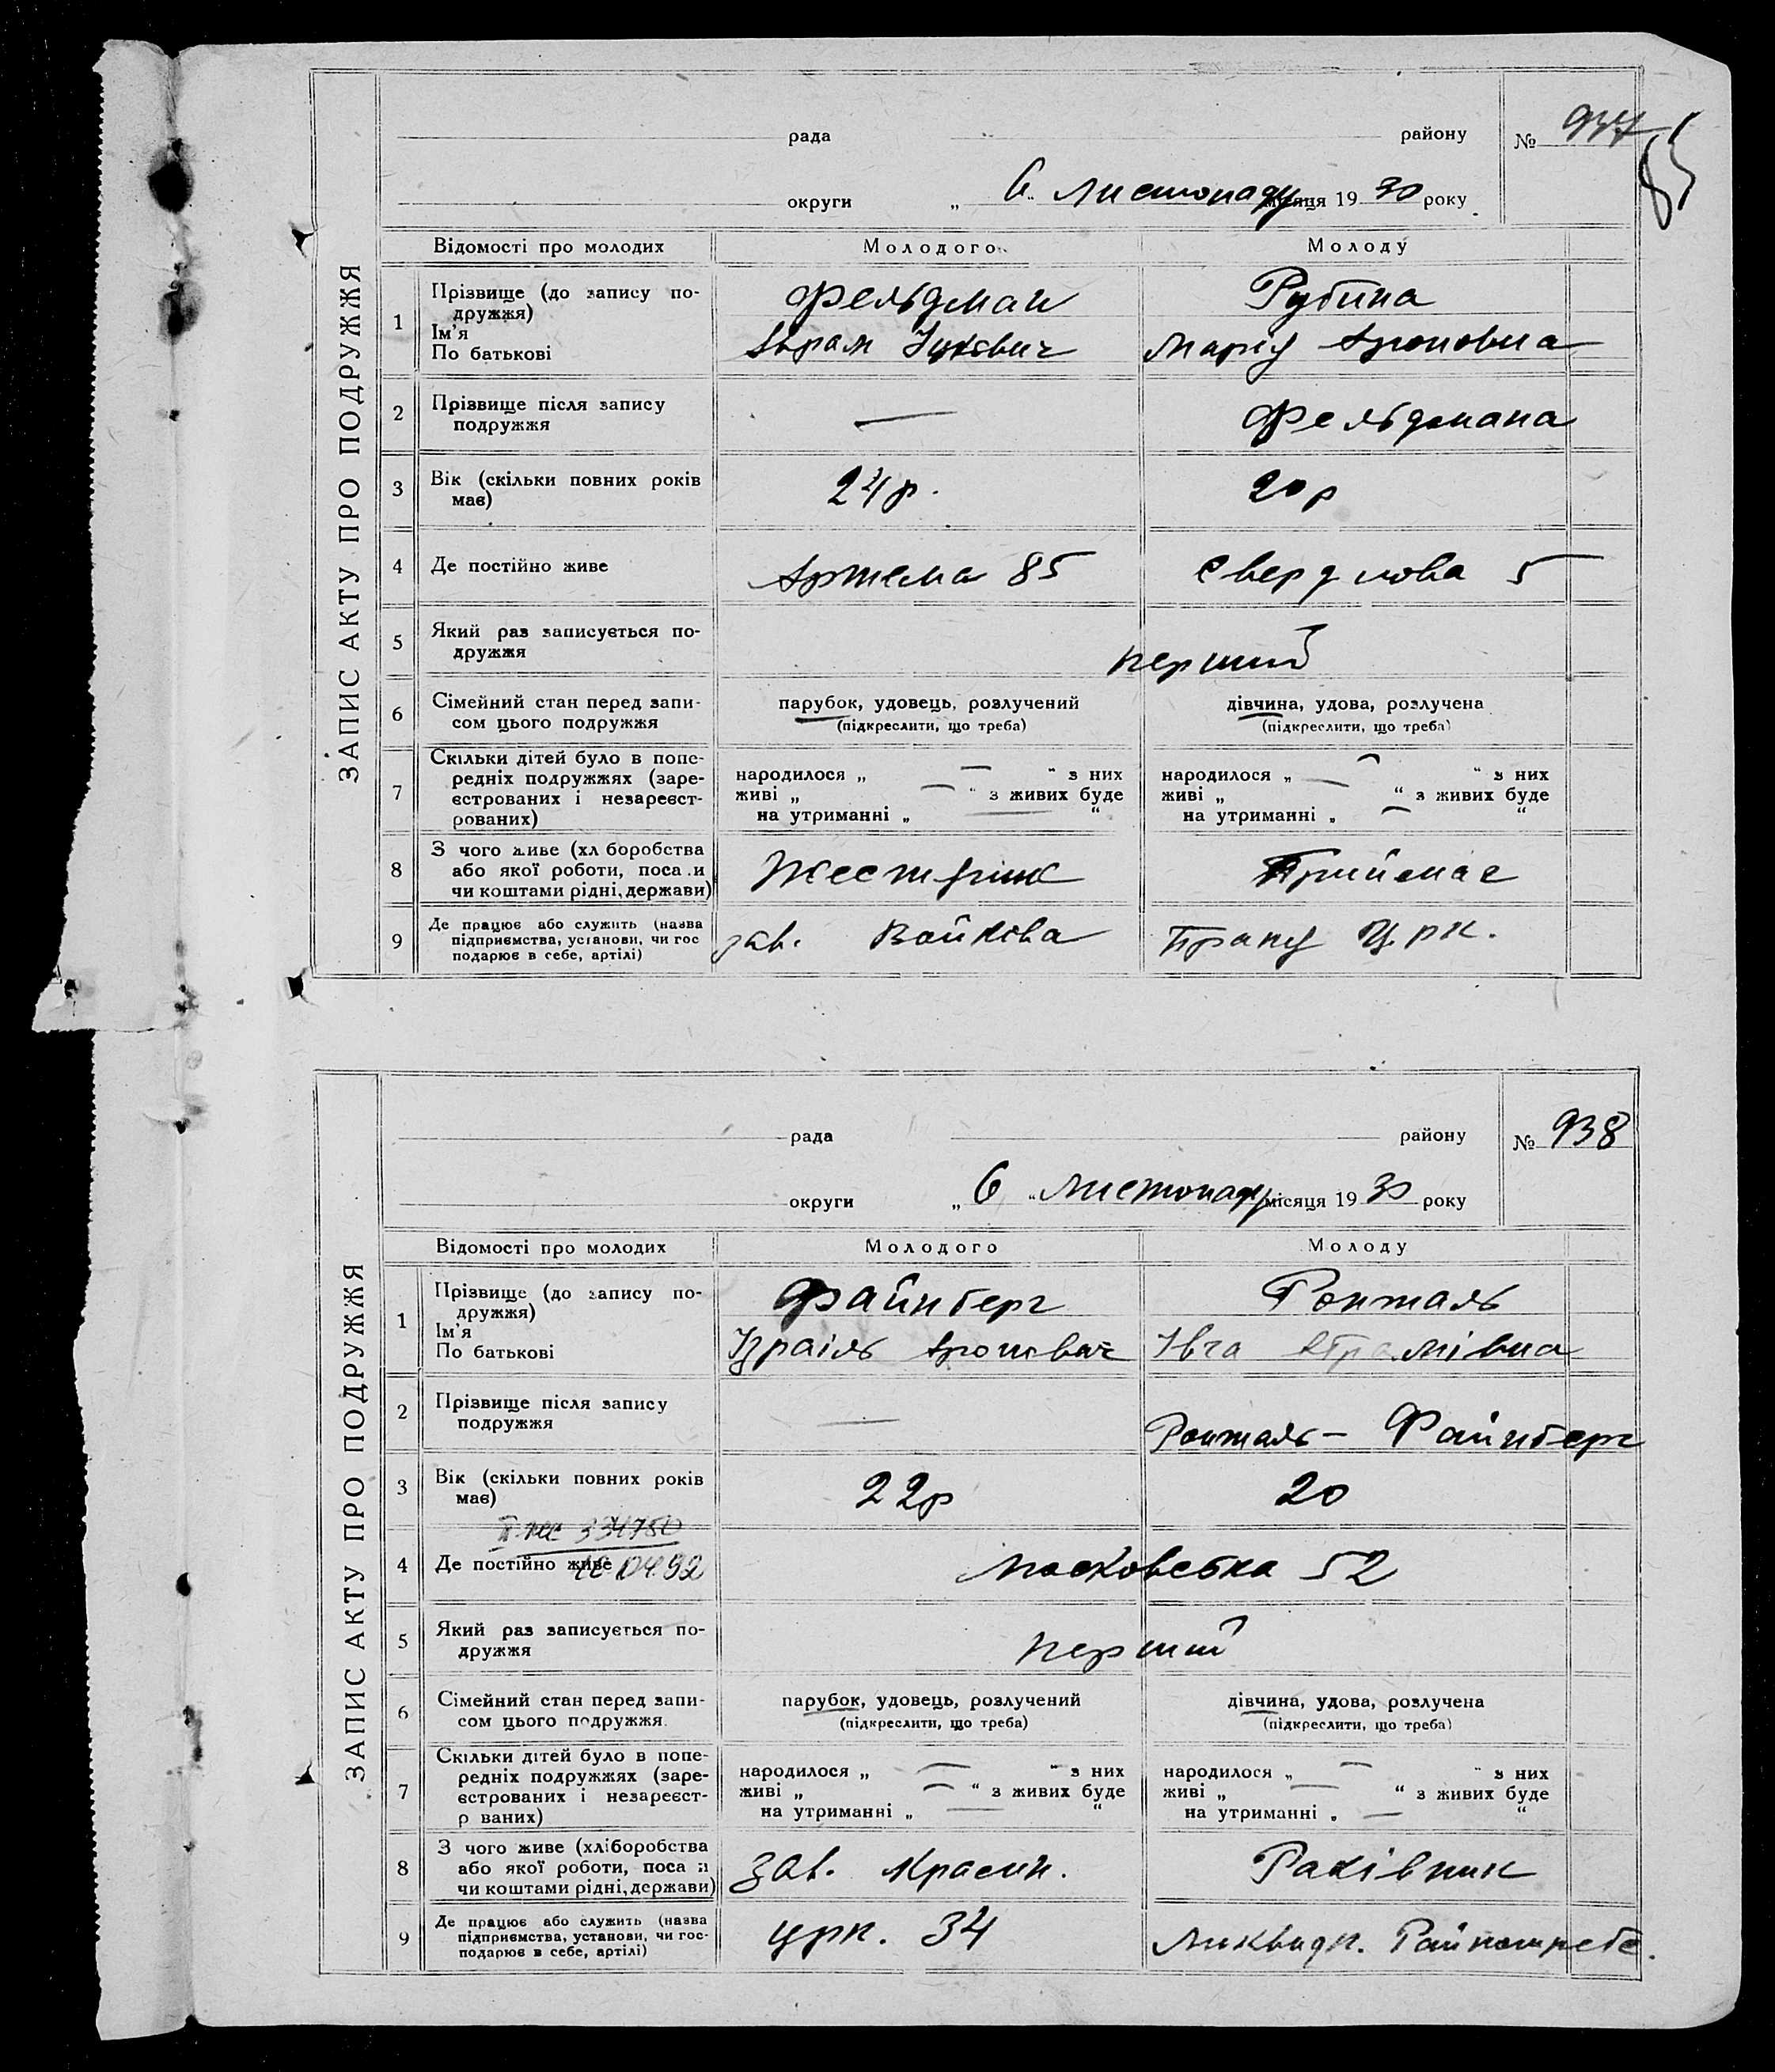 ЗАПИС АКТУ ПРО ПОДРУЖЖЯ
рада району № 937
85
округи „ 6 “ листопаду місяця 19 30 року
Відомості про молодих Молодого Молоду
1 Прізвище (до запису по-
дружжя) Фельдман Рубіна
Ім'я
По батькові Абрам Іцкович Марія Ароновна
2 Прізвище після запису
подружжя — Фельдмана
3 Вік (скільки повних років
має) 24 р. 20 р
4 Де постійно живе Артема 85 Свердлова 5
5 Який раз записується по-
дружжя перший
6 Сімейний стан перед запи-
сом цього подружжя
парубок, удовець, розлучений дівчина, удова, розлучена
(підкреслити, що треба) (підкреслити, що треба)
7 Скільки дітей було в попе-
редніх подружжях (заре-
єстрованих і незареєст-
рованих)
народилося „ — “ з них народилося „ — “ з них
живі „ — “ з живих буде живі „ — “ з живих буде
на утриманні „ — “ на утриманні „ — “
8 З чого живе (хл боробства
або якої роботи, поса и
чи коштами рідні, держави) Жестяник
9 Де працює або служить (назва
підприємства, установи, чи гос
подарює в себе, артілі) зав. Войкова Ц.Р.К.
ЗАПИС АКТУ ПРО ПОДРУЖЖЯ
рада району № 938
округи „ 6 “ листопаду місяця 19 30 року
Відомості про молодих Молодого Молоду
1 Прізвище (до запису по-
дружжя) Файнберг Ронталь
Ім'я
По батькові Ізраіль Аронович Абрамівна
2 Прізвище після запису
подружжя — Ронталь – Файнберг
3 Вік (скільки повних років
має) 22 р 20
334750
4 Де постійно живе Московська 52
5 Який раз записується по-
дружжя перший
6 Сімейний стан перед запи-
сом цього подружжя
парубок, удовець, розлучений дівчина, удова, розлучена
(підкреслити, що треба) (підкреслити, що треба)
7 Скільки дітей було в попе-
редніх подружжях (заре-
єстрованих і незареєст-
р ваних)
народилося „ — “ з них народилося „ — “ з них
живі „ — “ з живих буде живі „ — “ з живих буде
на утриманні „ — “ на утриманні „ — “
8 З чого живе (хліборобства
або якої роботи, поса и
чи коштами рідні, держави) Зав. Рахівник
9 Де працює або служить (назва
підприємства, установи, чи гос-
подарює в себе, артілі) црк. 34 Ликвидк. Райпотребс.